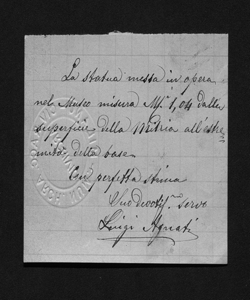 La statua messa in opera
nel Museo misura M.i 1,04 dalla
superficie della Mitria all'estre
mità della base.
Con perfetta stima
Suo devot.mo servo
Luigi Agnati